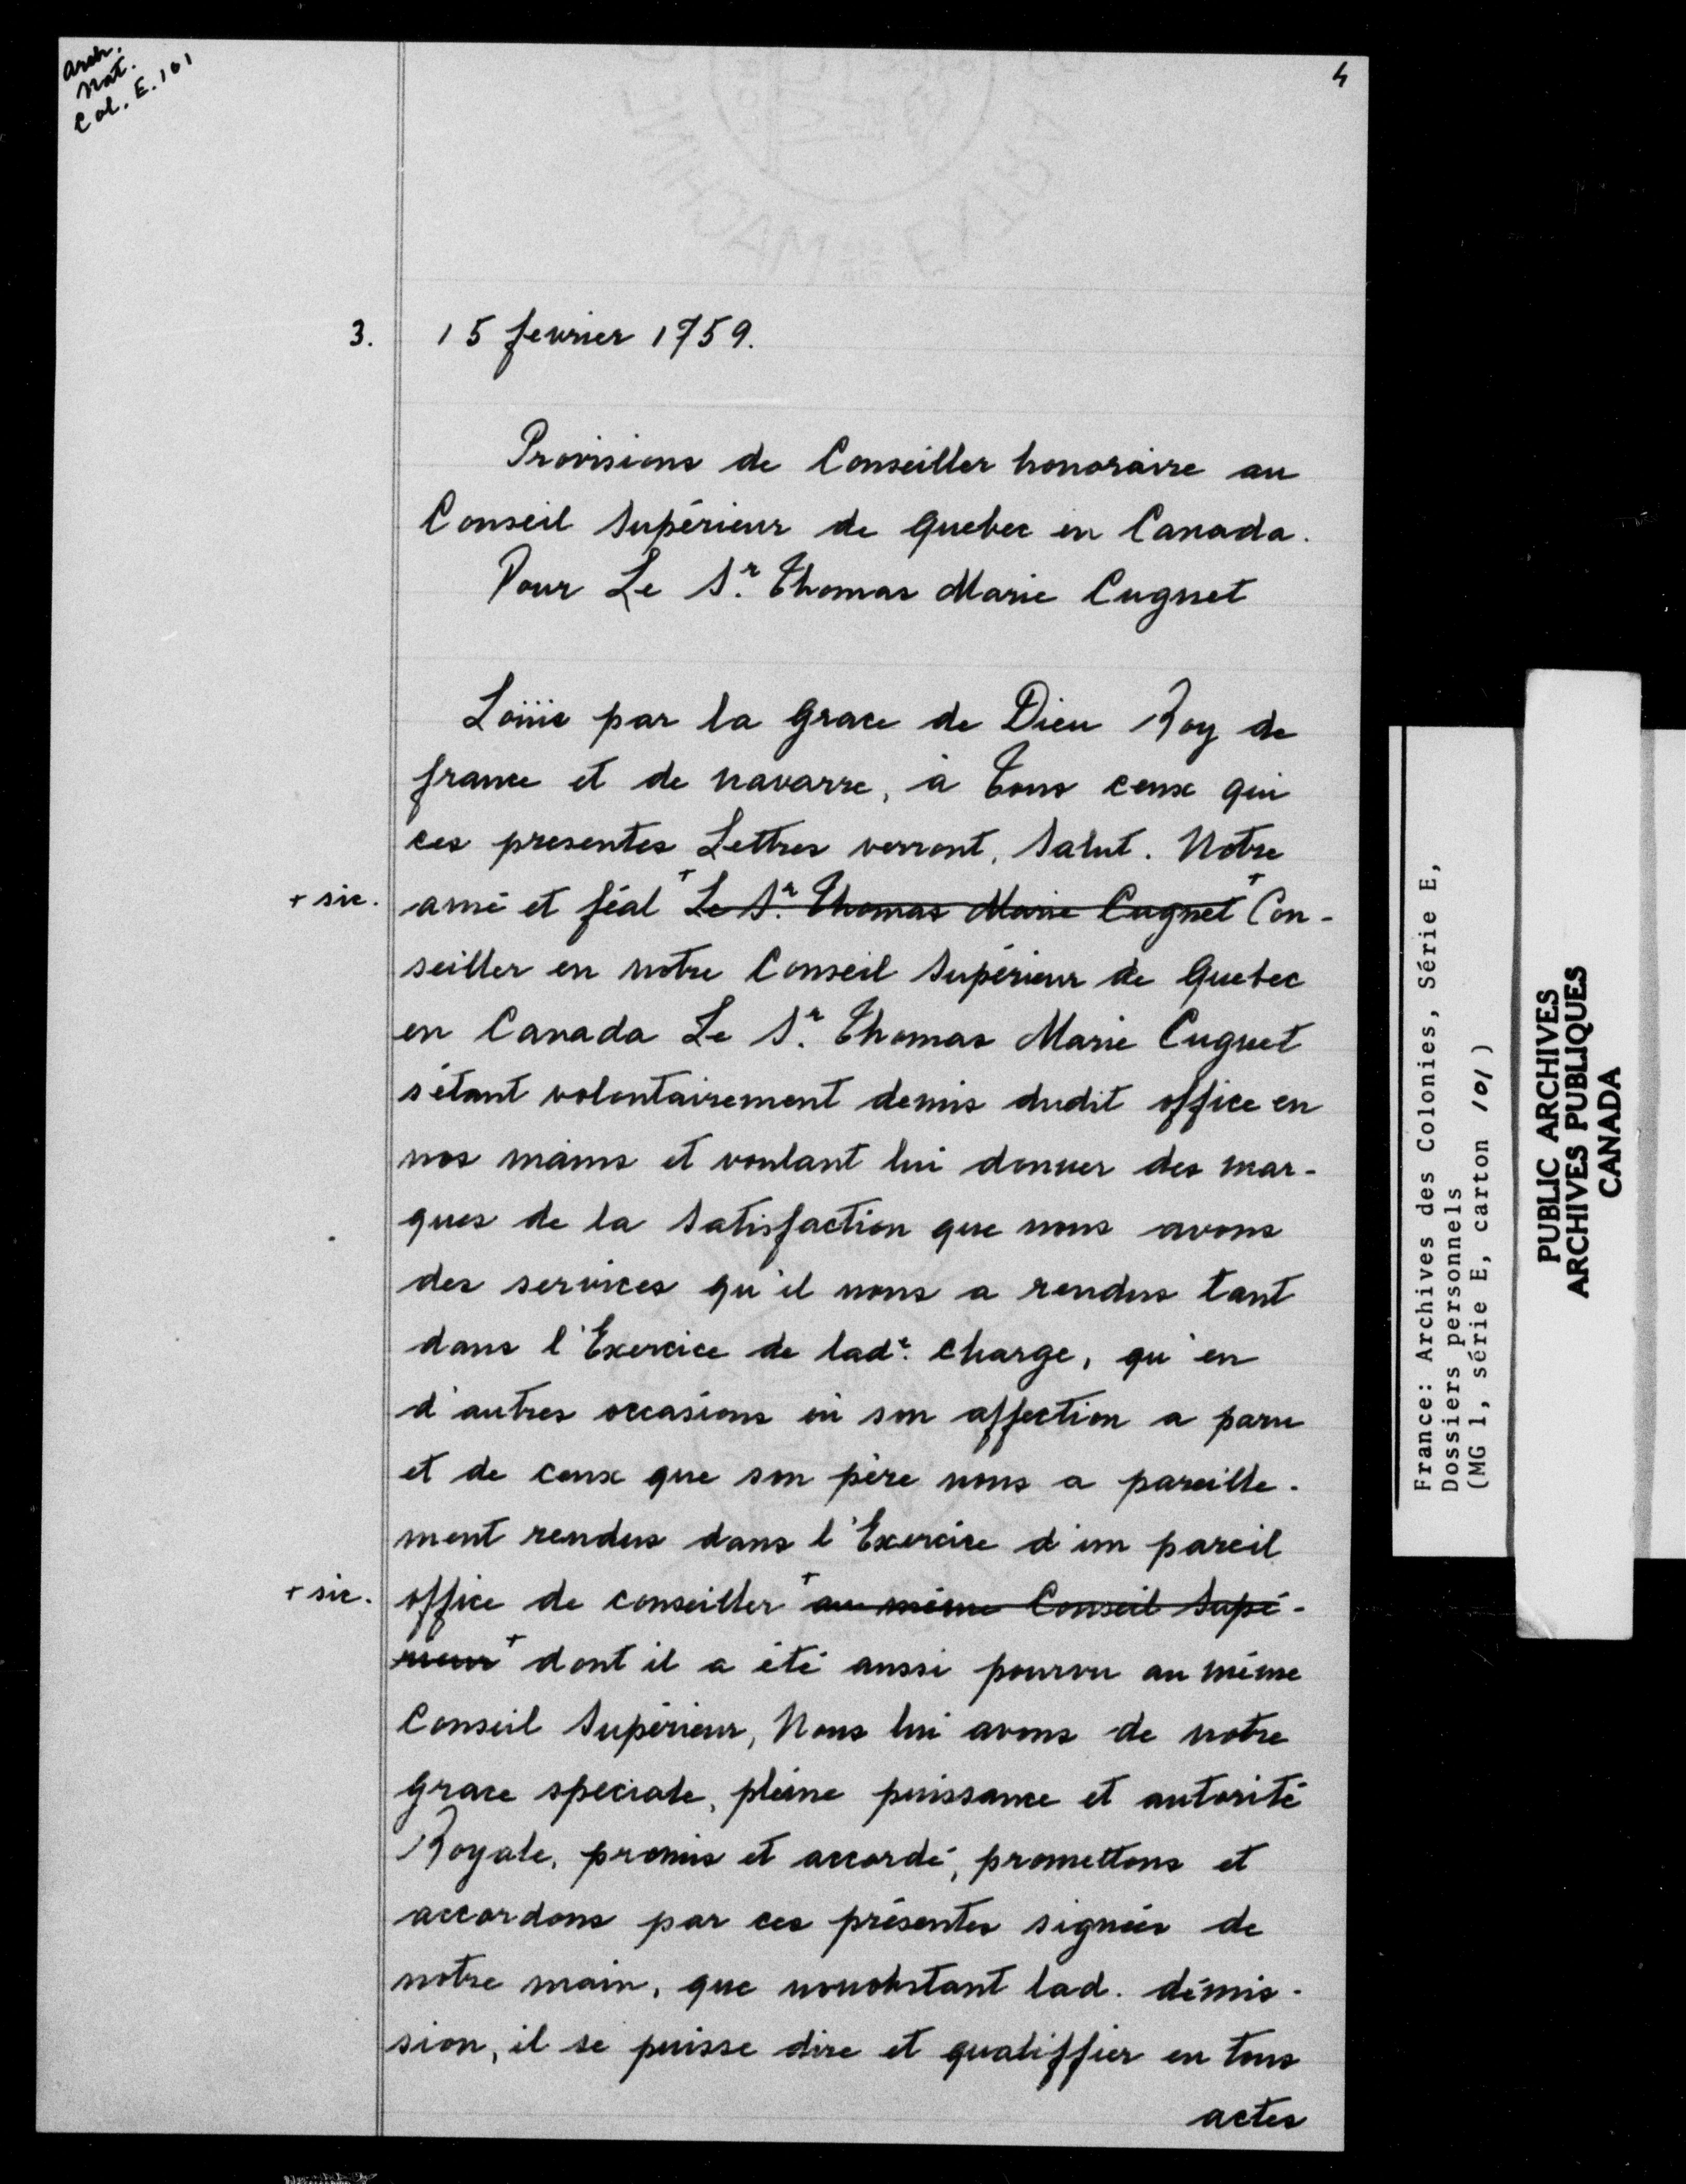 arch.
nat.
Col. E. 101
4
3. 15 fevrier 1759.
Provisions de Conseiller honoraire au
Conseil Supérieur de Quebec en Canada.
Pour Le Sr. Thomas Marie Cugnet
Loüis par la Grace de Dieu Roy de
france et de navarre, à tous ceux qui
ces presentes Lettres verront, Salut. Notre
+ sic. amé et féal + Le Sr. Thomas Marie Cugnet + Con-
seiller en notre Conseil Supérieur de Quebec
en Canada Le Sr. Thomas Marie Cugnet
s'étant volontairement demis dudit office en
nos mains et voulant lui donner des mar-
ques de la Satisfaction que nous avons
des services qu'il nous a rendus tant
dans l'Exercice de lade. charge, qu'en
d'autres occasions où son affection a paru
et de ceux que son père nous a pareille-
ment rendus dans l'Exercice d'un pareil
+ sic. office de conseiller + au même Conseil Supé-
rieur + dont il a été aussi pourvu au même
Conseil Supérieur, Nous lui avons de notre
grace speciale, pleine puissance et autorité
Royale, promis et accordé, promettons et
accordons par ces présentes signées de
notre main, que nonobstant lad. démis-
sion, il se puisse dire et qualiffier en tous
actes
France: Archives des Colonies, Série E,
Dossiers personnels
(MG 1, série E, carton 101)
PUBLIC ARCHIVES
ARCHIVES PUBLIQUES
CANADA